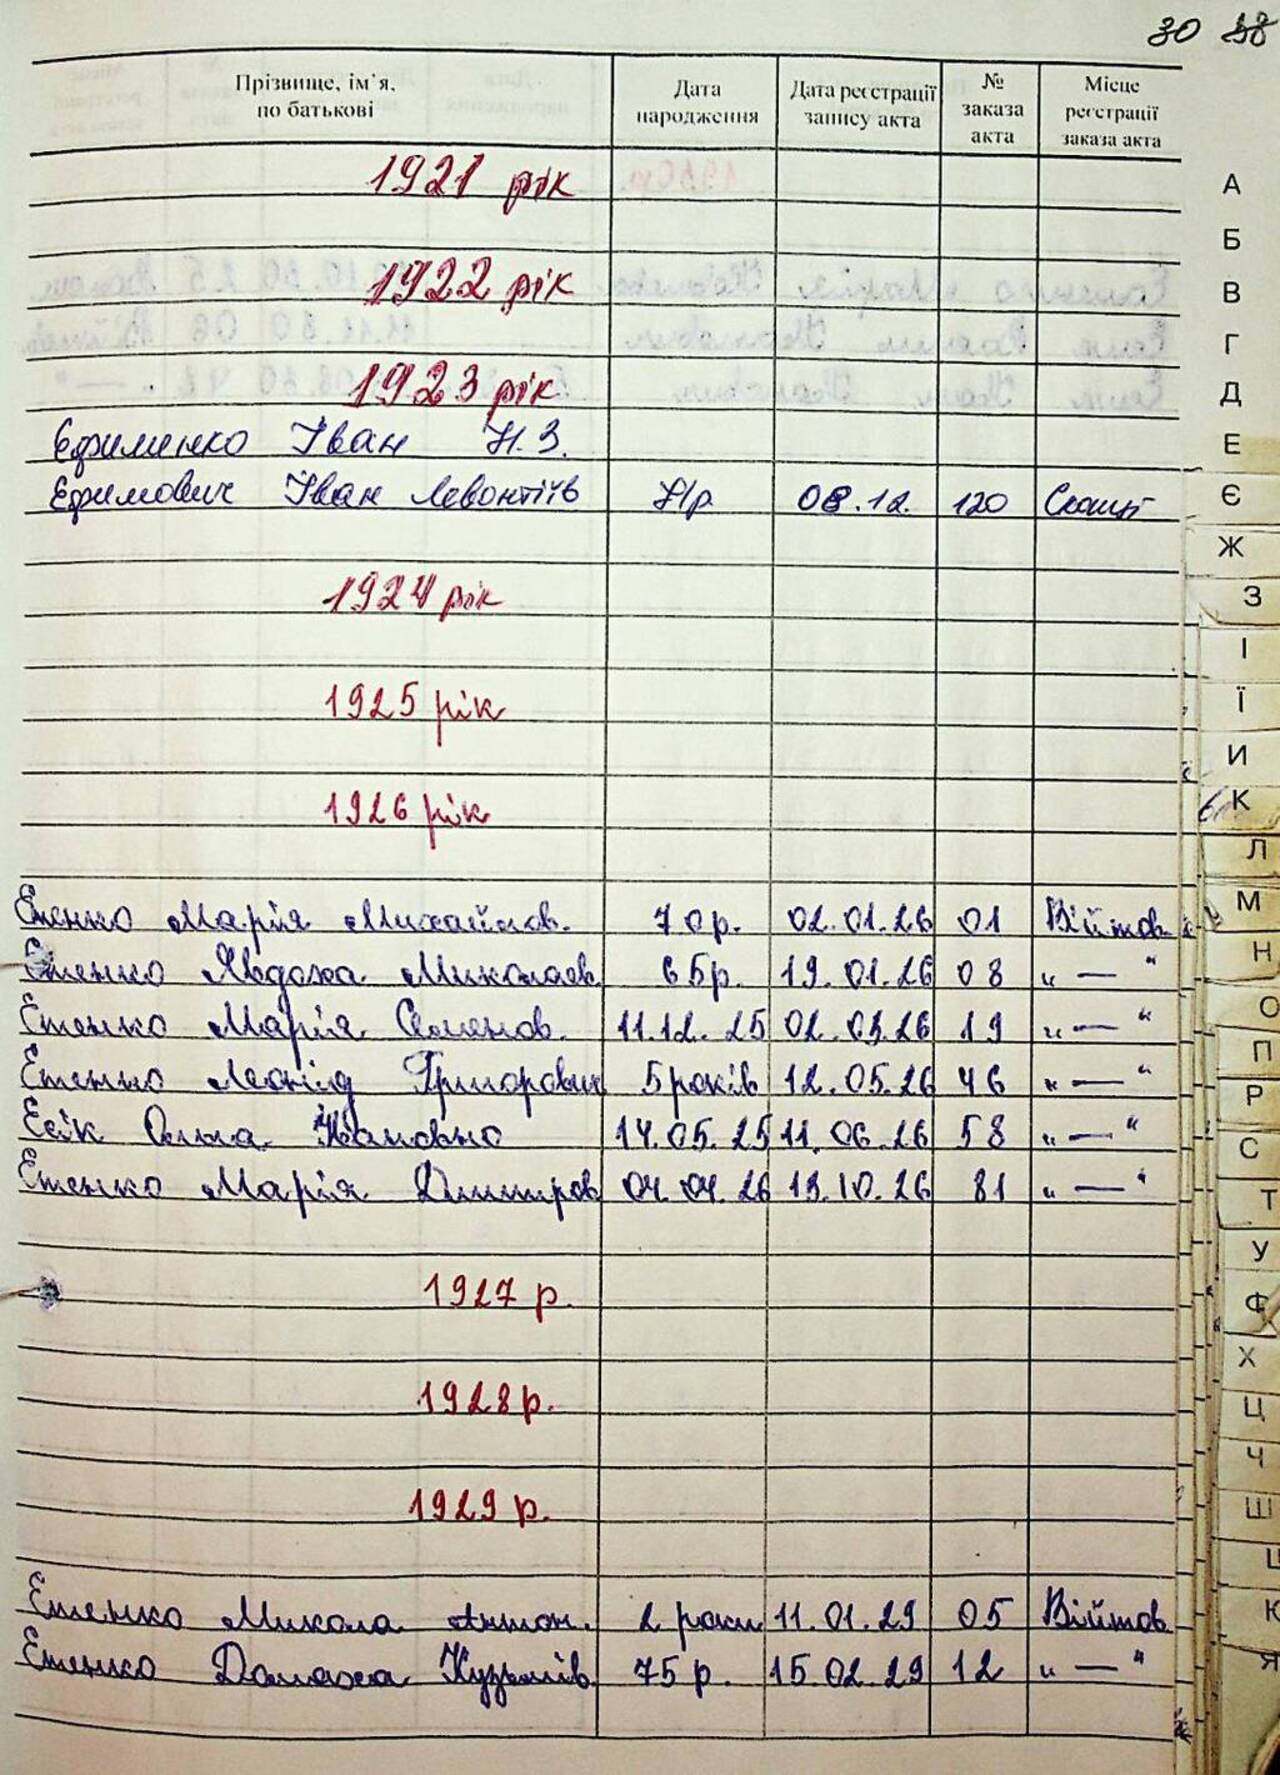 30 38
Прізвище, ім'я, по батькові
Дата народження
Дата реєстрації запису акта
№ заказа акта
Місце реєстрації заказа акта
1921 рік
1922 рік
1923 рік
Єфименко Іван Н.З.
Єфимович Іван Левонтіїв Н/р 08.12. 120
1924 рік
1925 рік
1926 рік
Єтенко Марія Михайлов. 70р. 02.01.26 01 Війтов.
Єтенко Явдоха Миколаєв. 65р. 19.01.26 08 „ — “
Єтенко Марія Семенов. 11.12.25 02.03.26 19 „ — “
Єтенко Леонід Григорович 5 років 12.05.26 46 „ — “
Єсік Ольга Івановна 14.05.25 11.06.26 58 „ — “
Єтенко Марія Дмитров. 04.04.26 13.10.26 81 „ — “
1927 р.
1928 р.
1929 р.
Єтенко Микола Антон. 2 роки 11.01.29 05 Війтов.
Єтенко Домаха Кузьмів. 75 р. 15.02.29 12 „ — “
А
Б
В
Г
Д
Е
Є
Ж
З
І
Ї
И
К
Л
М
Н
О
П
Р
С
Т
У
Ф
Х
Ц
Ч
Ш
Я